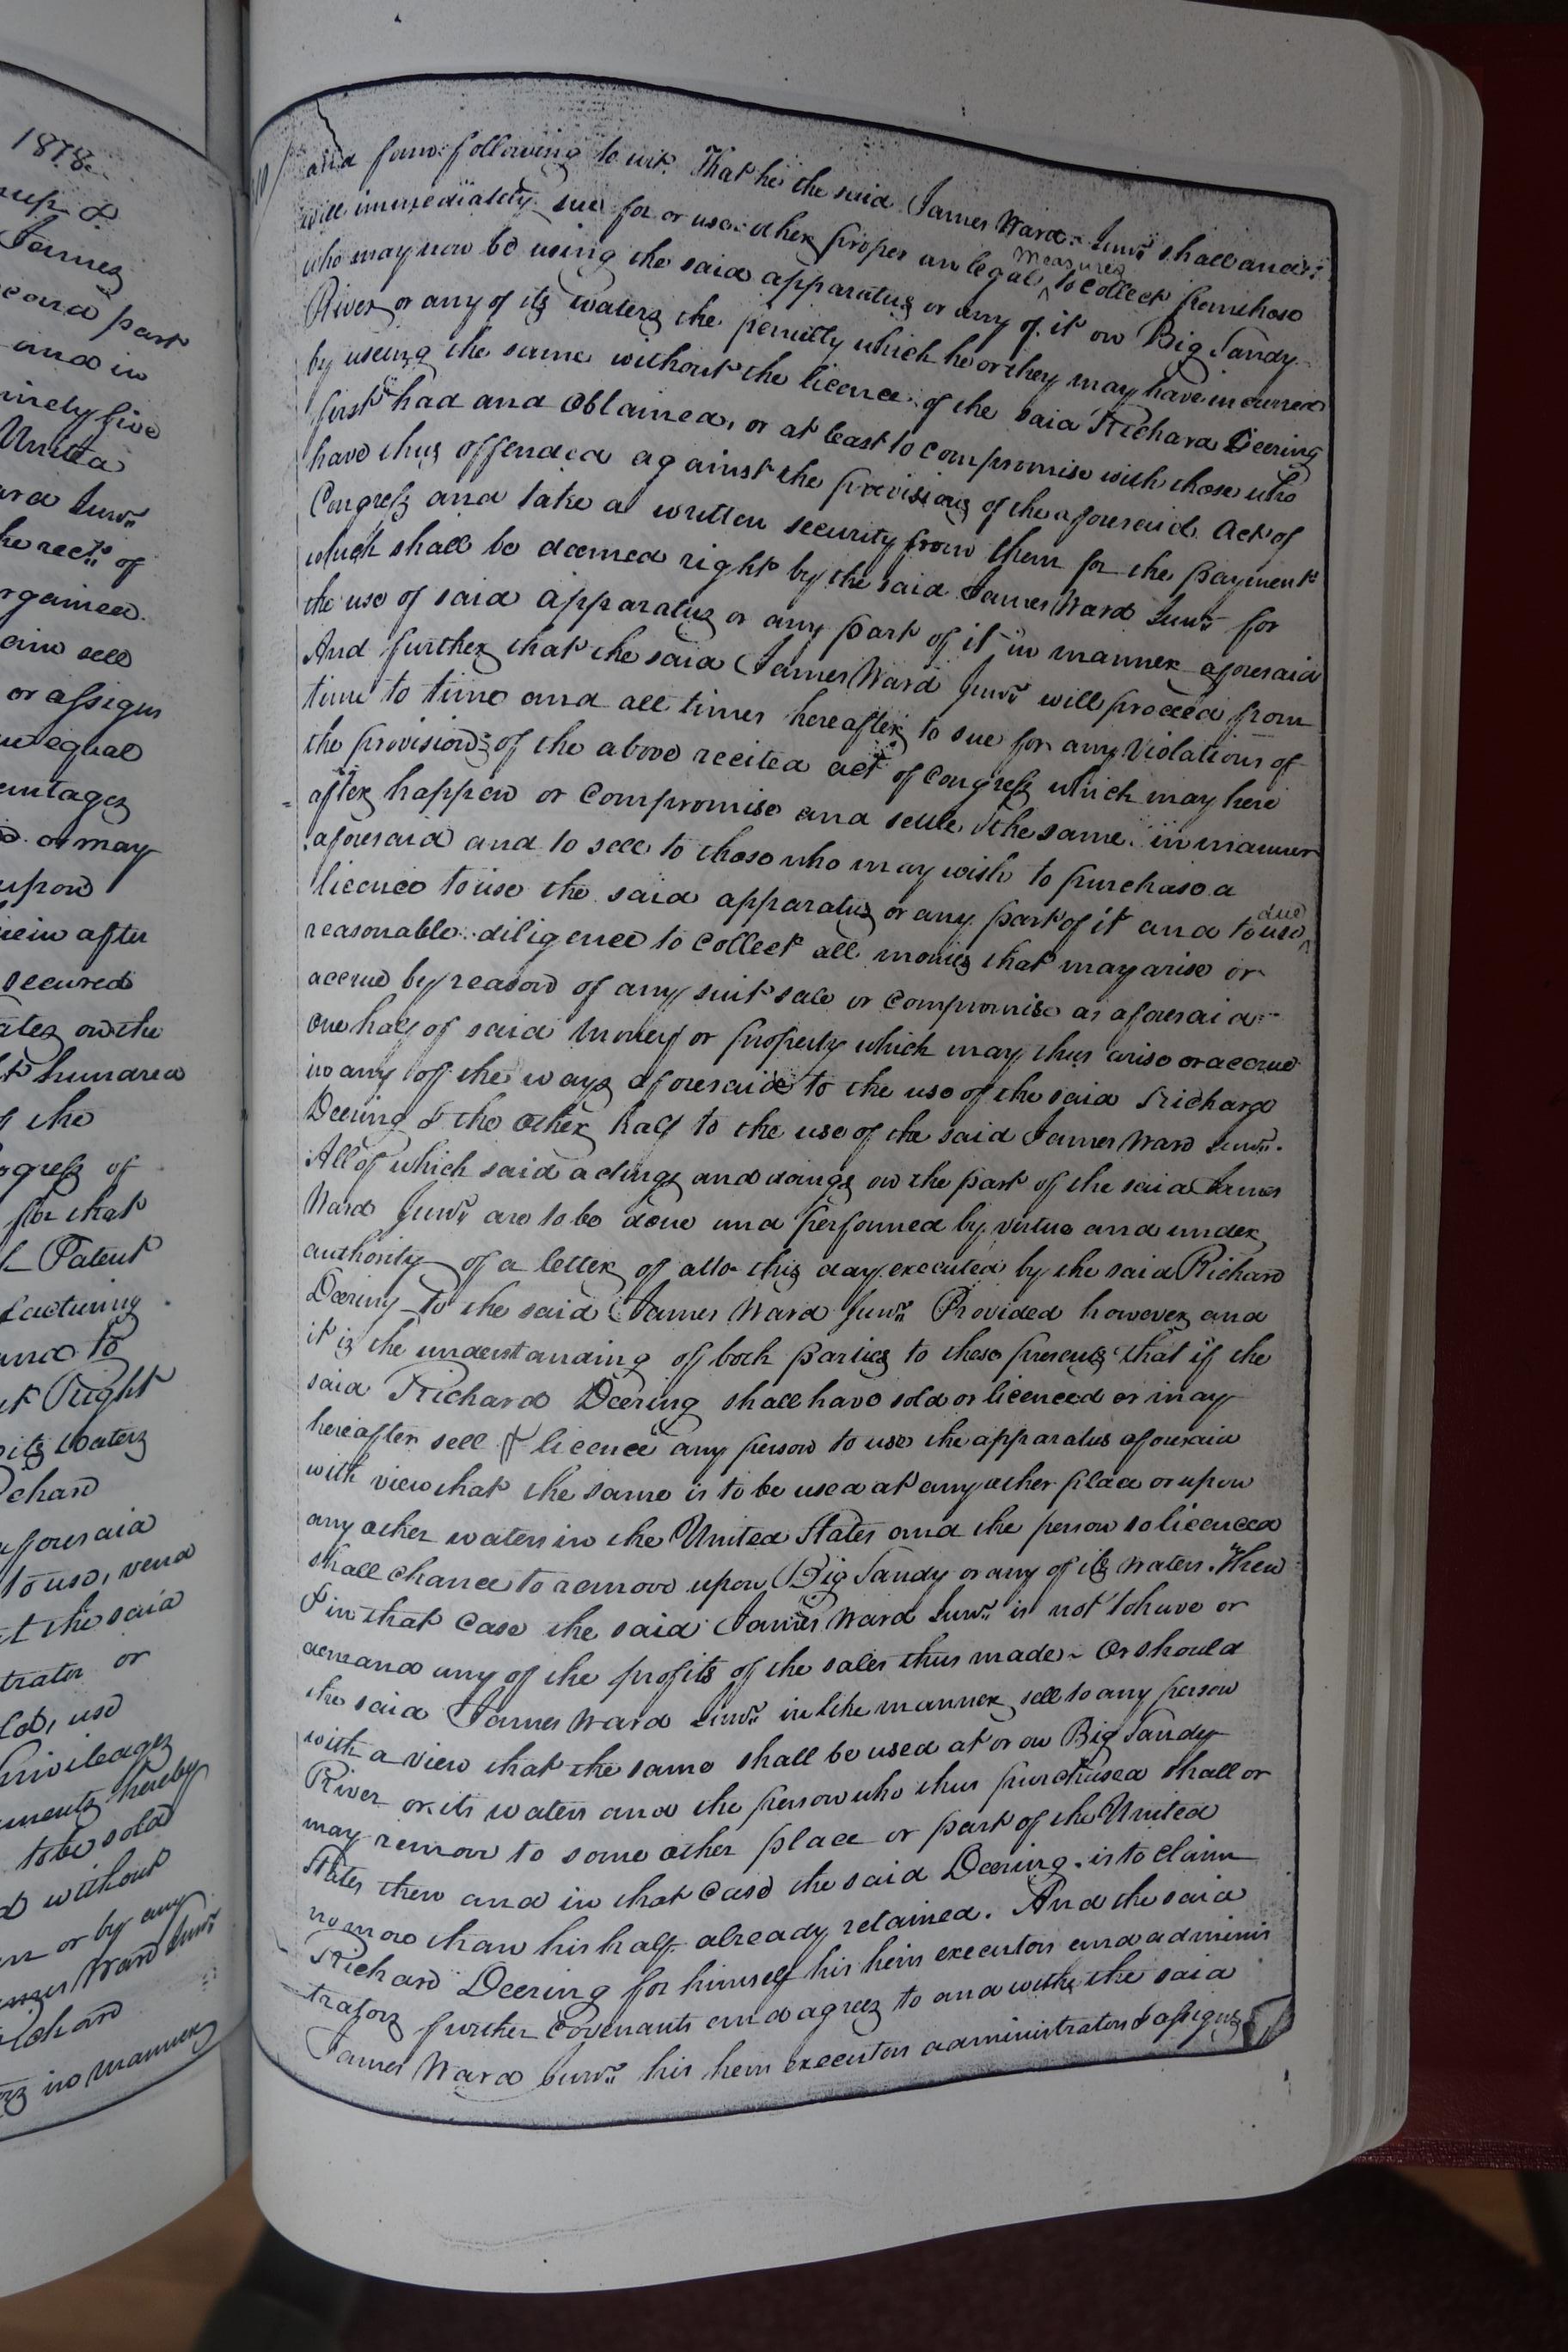 1878
up &
James
cond part
and in
ninety five
United
ard Junr
he rect of
rgained
ain sell
or assigns
equal
antages
or may
upon
rein after
secured
ates on the
t hundred
of the
ogress of
for that
Patent
facturing
and to
t Right
its waters
Richard
aforesaid
to use, vend
t the said
trator or
ld, use
Priviledges
ments hereby
to be sold
d without
or by any
James Ward Junr
Richard
in manner
and form following to wit. That he the said James Ward Junr shall and
will immediately sue for or use other proper an legal measures to collect from those
who may now be using the said apparatus or any of it on Big Sandy
River or any of its waters the penalty which he or they may have incurred
by useing the same without the licence of the said Richard Deering
first had and obtained, or at least to compromise with those who
have thus offended against the provisions of the aforesaid Act of
Congress and take a written security from them for the payment
which shall be deemed right by the said James Ward Junr for
the use of said apparatus or any part of it in manner aforesaid
And further that the said James Ward Junr will proceed from
time to time and all times hereafter to sue for any violations of
the provisions of the above recited act of Congress which may here
after happen or compromise and settle the same in manner
aforesaid and to sell to those who may wish to purchase a
licence to use the said apparatus or any part of it and to use due
reasonable diligence to collect all monies that may arise or
accrue by reason of any suit sale or compromise as aforesaid
one half of said money or property which may thus arise or accrue
in any of the ways aforesaid to the use of the said Richard
Deering & the other half to the use of the said James Ward Junr.
All of which said actings and doings on the part of the said James
Ward Junr are to be done and performed by virtue and under
authority of a letter of atto this day executed by the said Richard
Deering to the said James Ward Junr Provided however and
it is the understanding of both parties to these presents that if the
said Richard Deering shall have sold or licenced or may
hereafter sell or licence any person to use the apparatus aforesaid
with view that the same is to be used at any other place or upon
any other waters in the United States and the person so licenced
shall chance to remove upon Big Sandy or any of its waters. Then
& in that case the said James Ward Junr is not to have or
demand any of the profits of the sales thus made - Or should
the said James Ward Junr in like manner sell to any person
with a view that the same shall be used at or on Big Sandy
River or its waters and the person who thus purchased shall or
may remove to some other place or part of the United
States then and in that case the said Deering is to claim
no more than his half already retained. And the said
Richard Deering for himself his heirs executors and adminis
trators further covenants and agrees to and with the said
James Ward Junr his heirs executors administrators & assigns